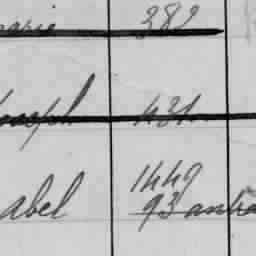 marie 382
Joseph 431
abel 1449
93